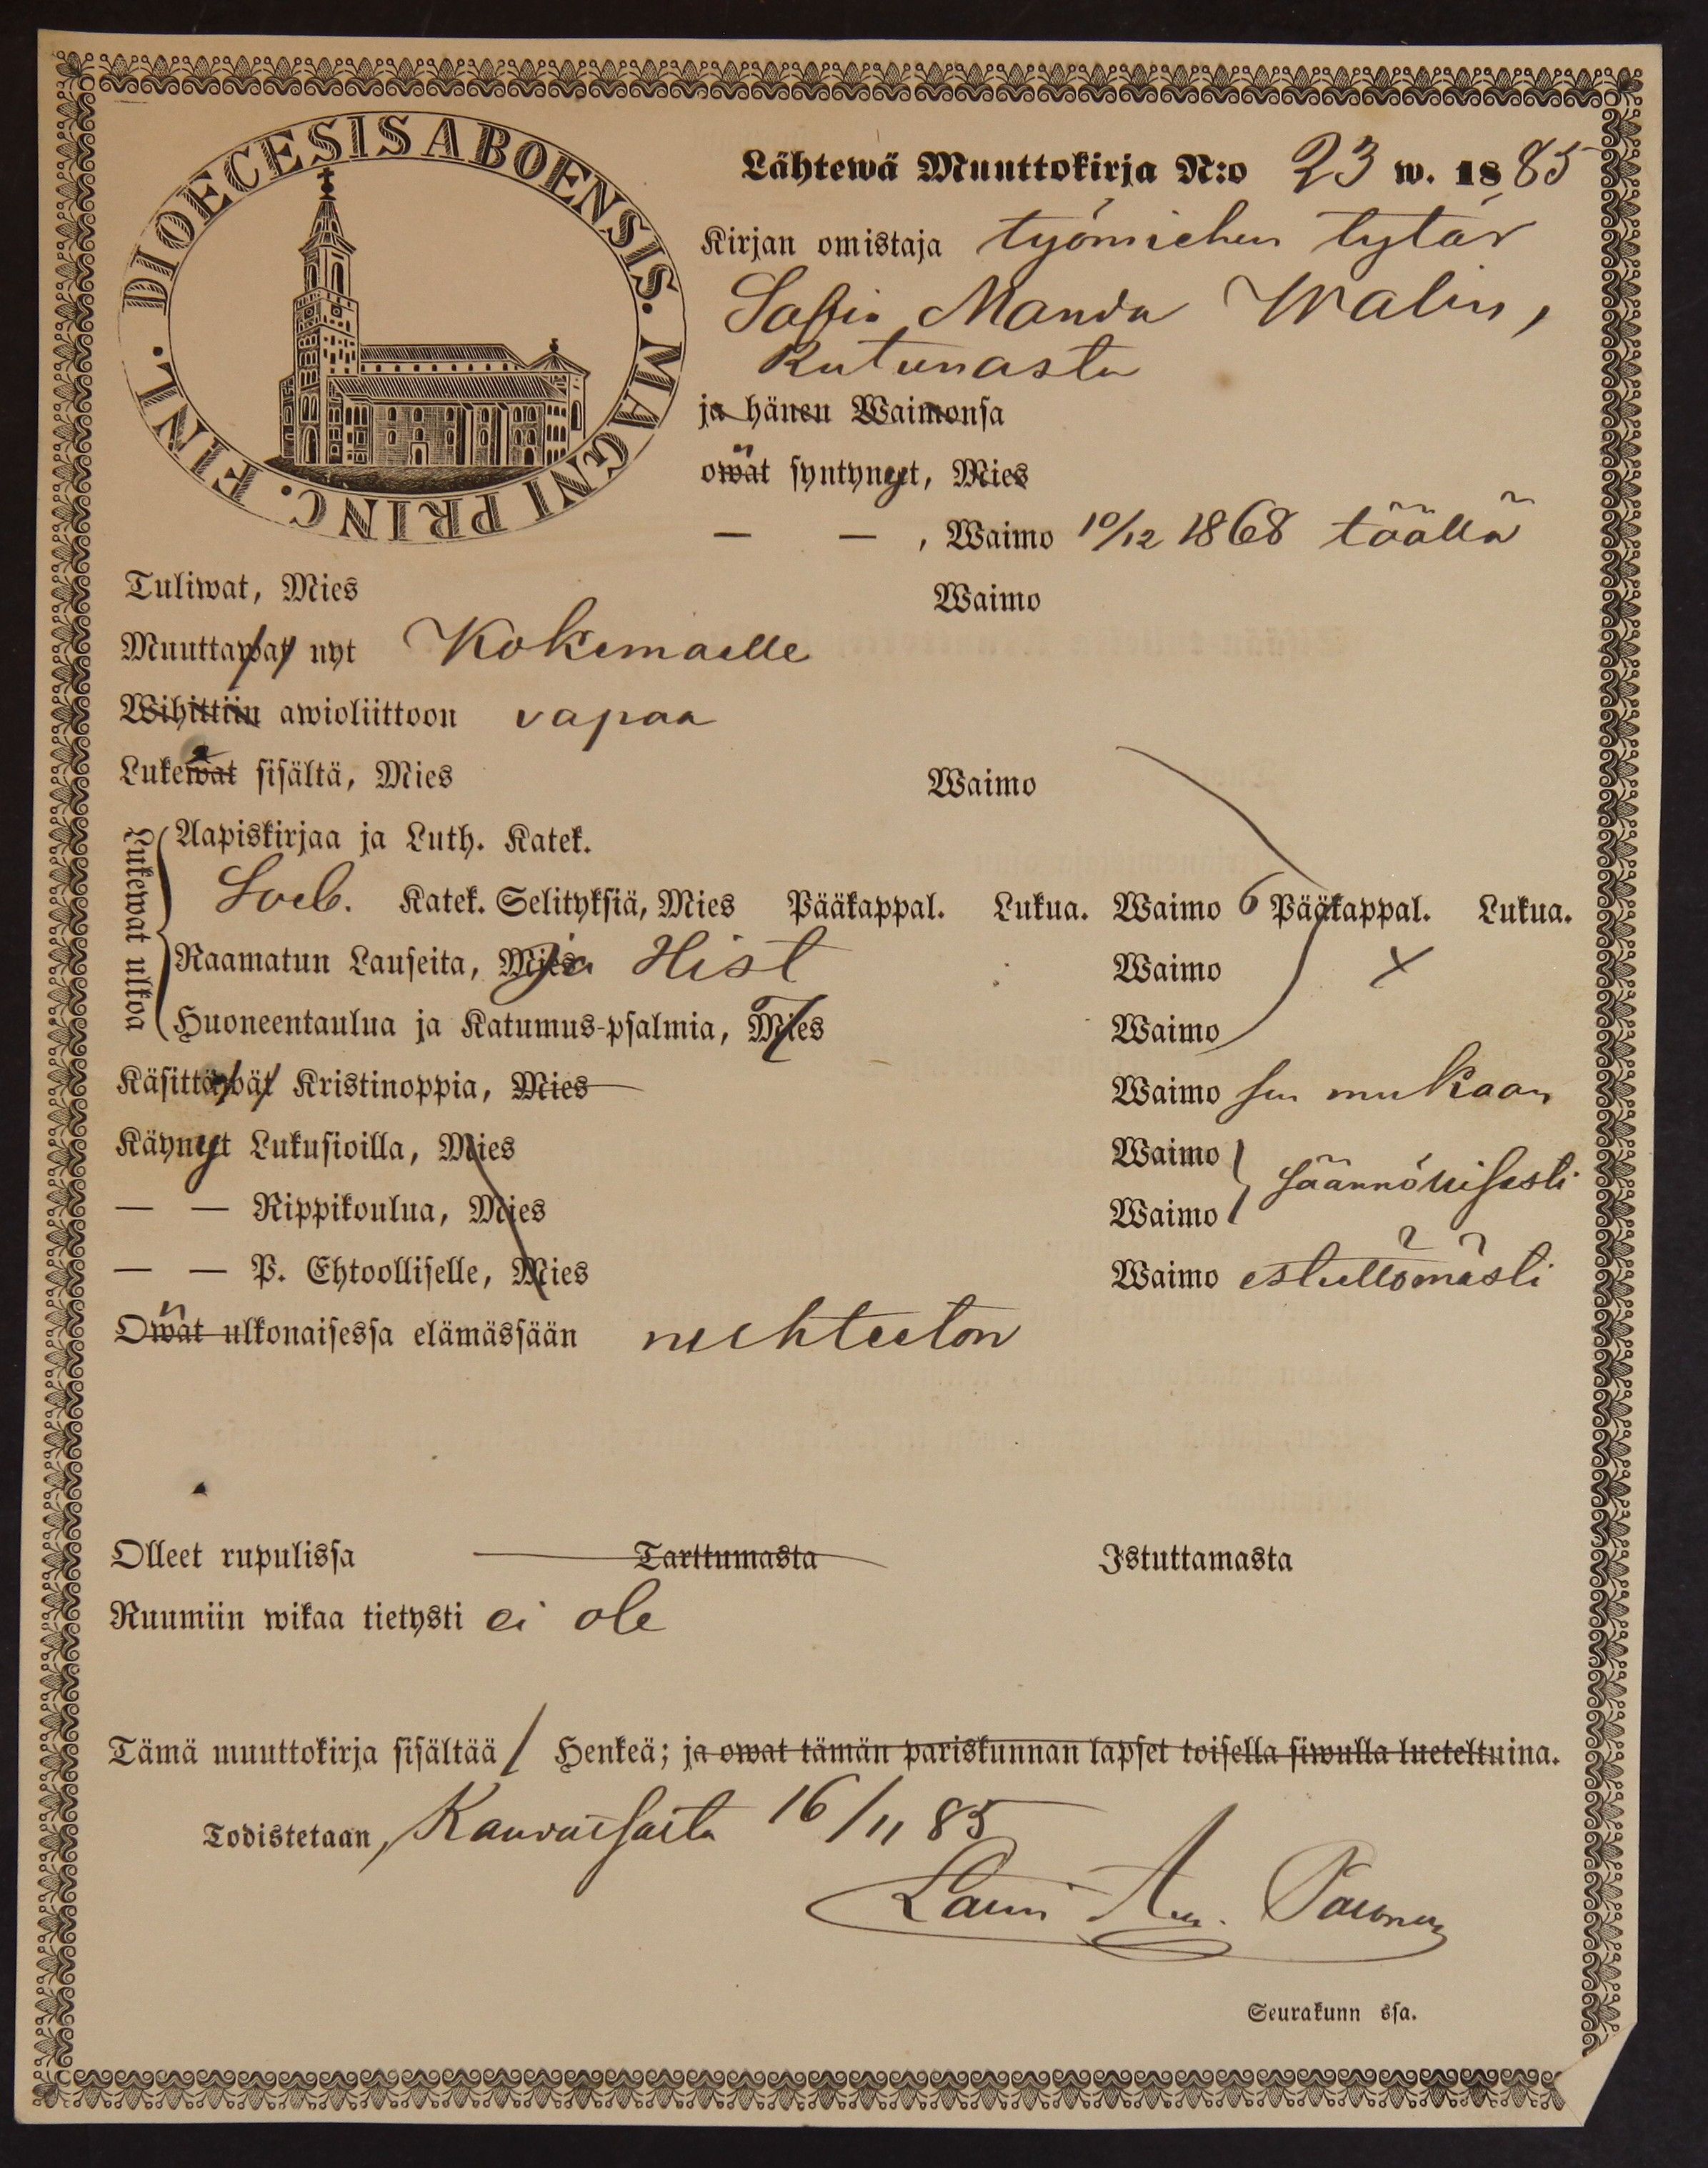 DIOECESIS ABOENSIS. MAGNI PRINC. FINL.
Lähtewä Muuttokirja N:o 23 w. 1885
Kirjan omistaja työmiehen tytär
Sofia Manda Walin,
ja hänen Waimonsa
owat syntynyt, Mies
— — , Waimo 10/12 1868 täällä
Tuliwat, Mies Waimo
Muuttawat nyt Kokemaelle
Wihittiin awioliittoon vapaa
Lukewat sisältä, Mies Waimo
Lukewat ulkoa
Aapiskirjaa ja Luth. Katek.
Katek. Selityksiä, Mies Pääkappal. Lukua. Waimo 6 Pääkappal. Lukua.
Raamatun Lauseita, Mies ja Hist Waimo x
Huoneentaulua ja Katumus-psalmia, Mies Waimo
Käsittäwät Kristinoppia, Mies Waimo sen mukaan
Käynyt Lukusioilla, Mies Waimo säännöllisesti
— — Rippikoulua, Mies Waimo
— — P. Ehtoolliselle, Mies Waimo estellömästi
Owat ulkonaisessa elämässään nuhteeton
Olleet rupulissa Tarttumasta Istuttamasta
Ruumiin wikaa tietysti ei ole
Tämä muuttokirja sisältää 1 Henkeä; ja owat tämän pariskunnan lapset toisella siwulla lueteltuina.
Todistetaan, Kauvatsasta 16/11 85
Lauri
Seurakunn ssa.